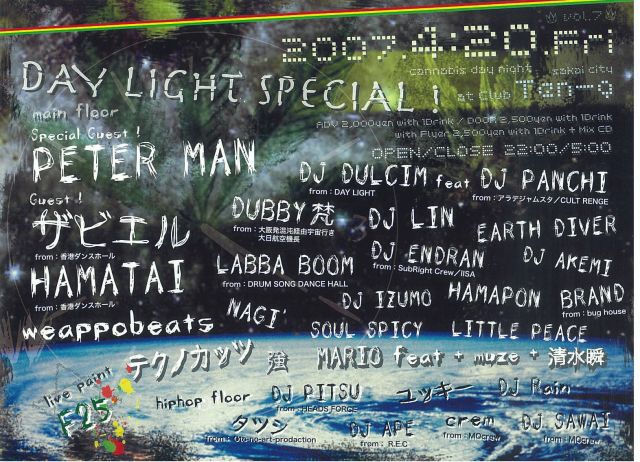 vol.7
2007.4:20.Fri
cannabis day night sakai city
at club Ten-q
DAY LIGHT SPECIAL !
ADV 2,000yen with 1Drink / DOOR 2,500yen with 1Drink
with Flyer 2,500yen with 1Drink + Mix CD
OPEN/CLOSE 22:00/5:00
main floor
Special Guest !
PETER MAN
DJ DULCIM feat DJ PANCHI
from : DAY LIGHT
from : アラデジャムスタ/CULT RENGE
Guest !
ザビエル
from : 香港ダンスホール
DUBBY 梵
from : 大阪発混沌経由宇宙行き
大日航空機長
DJ LIN
EARTH DIVER
HAMATAI
from : 香港ダンスホール
LABBA BOOM
from : DRUM SONG DANCE HALL
DJ ENDRAN
from : SubRight Crew/IISA
DJ AKEMI
weappobeats
NAGI'
DJ IZUMO
HAMAPON
BRAND
from : bug house
SOUL SPICY
LITTLE PEACE
テクノカッツ
強
MARIO feat + muze + 清水瞬
live paint
F25
hiphop floor
DJ PITSU
from : HEADS FORCE
ユッキー
DJ Rain
タツシ
from : Oto-no-art-production
DJ APE
from : R.E.C
crem
from : MOcrew
DJ SAWAI
from : MOcrew